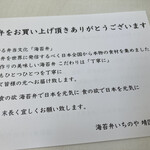 弁をお買い上げ頂きありがとうございます
る弁当文化「海苔弁」
弁を世界に発信するべく日本全国から本物の食材を集めました
作りの美味しい海苔弁 こだわりは「丁寧に」
もひとつひとつを丁寧に
ご目様の元へお届けします
食の欲 海苔弁で日本を元気に 食の欲で日本を元気に
末長く宜しくお願い致します。
海苔弁いちのや 靖国